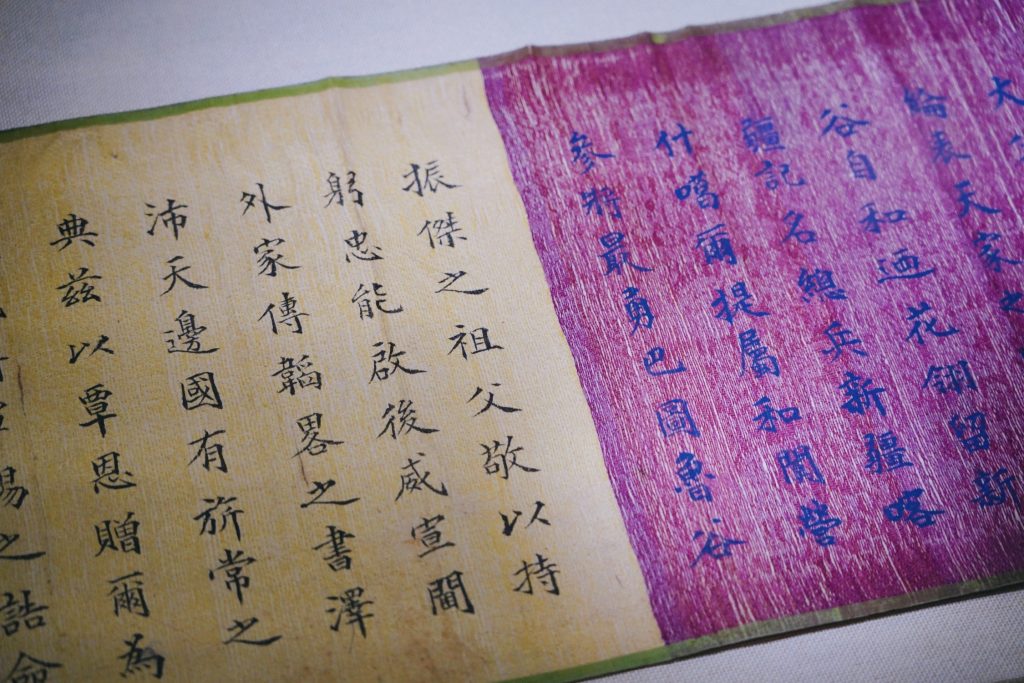 大
綸表天家之
谷自和迺花翎留新
疆記名總兵新疆喀
什噶爾提屬和闐營
參將最勇巴圖魯谷
振傑之祖父敬以持
躬忠能啟後威宣閫
外家傳韜畧之書澤
沛天邊國有旂常之
典茲以覃恩贈爾為
錫之誥命